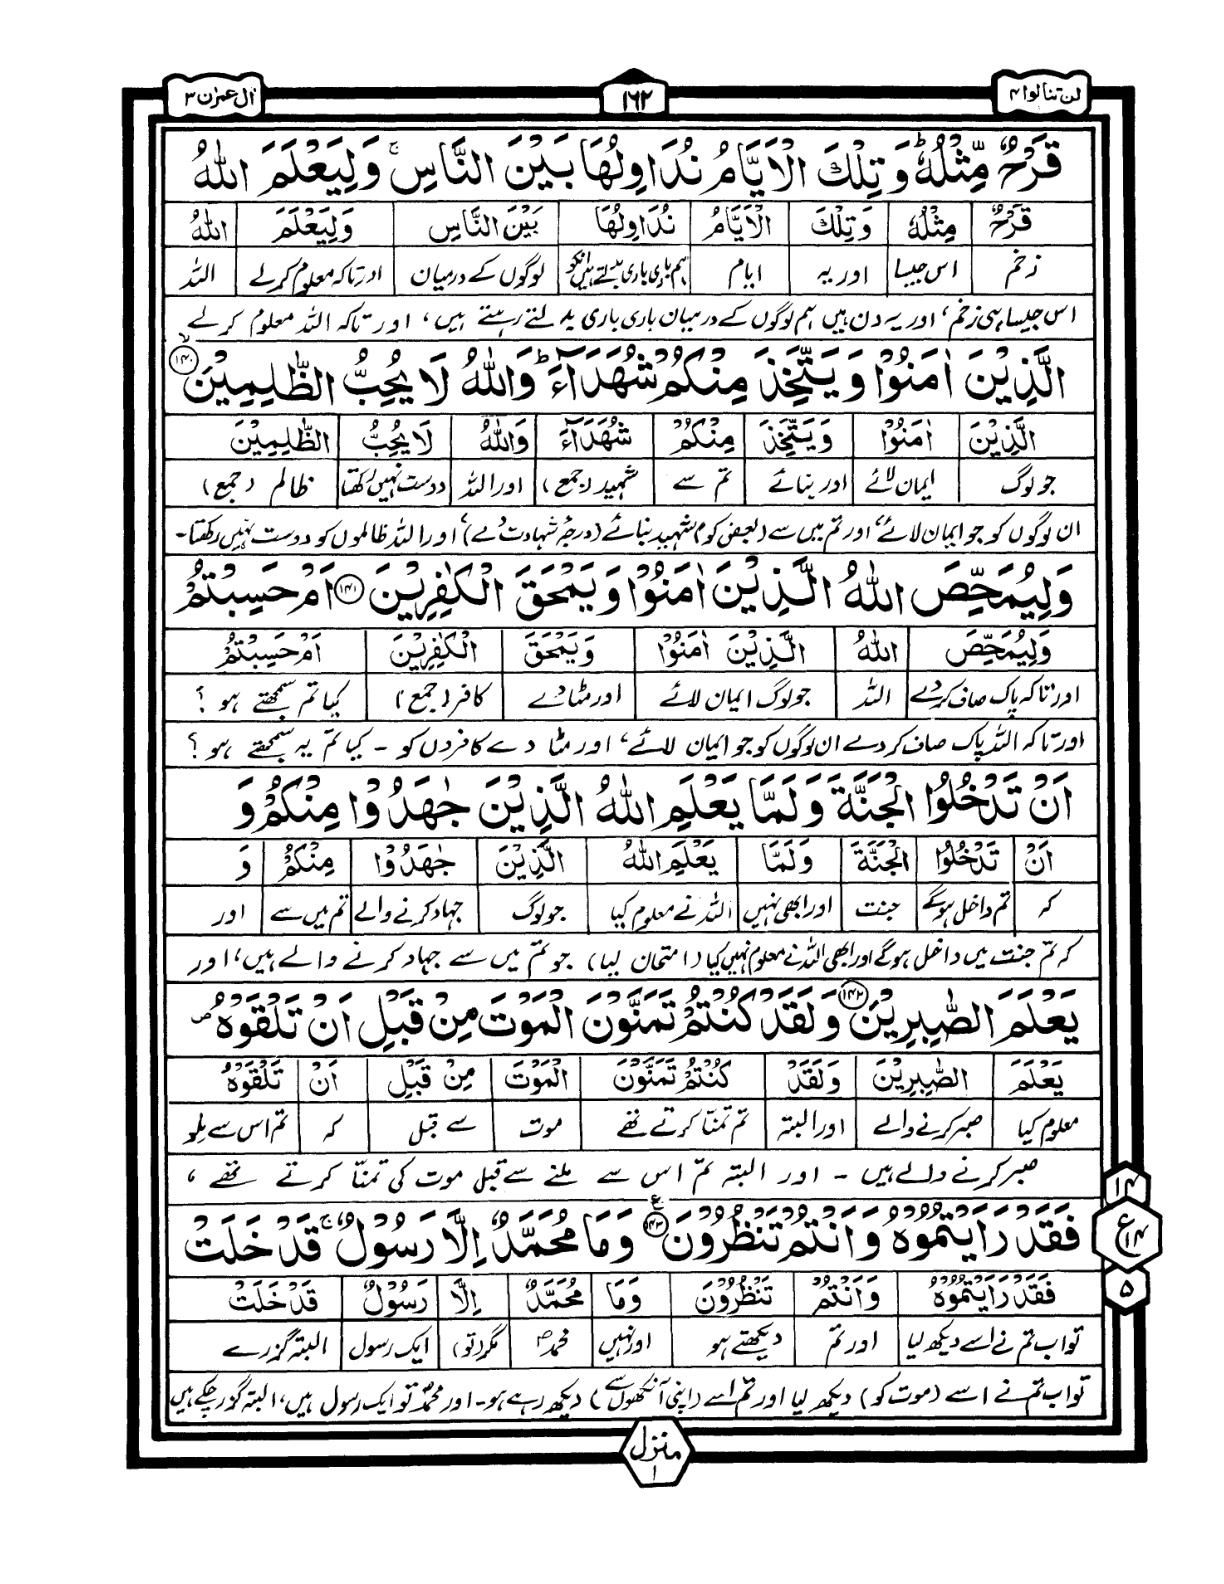 لن تنالوا ۴
۱۶۲
اٰل عمرٰن ۳
قَرْحٌ مِّثْلُهٗ ؕ وَ تِلْكَ الْاَیَّامُ نُدَاوِلُهَا بَیْنَ النَّاسِ ۚ وَ لِیَعْلَمَ اللّٰهُ
قَرْحٌ مِثْلُهٗ وَتِلْكَ الْاَیَّامُ نُدَاوِلُهَا بَیْنَ النَّاسِ وَلِیَعْلَمَ اللّٰهُ
زخم اس جیسا اور یہ ایام ہم باری باری بدلتے ہیں انکو لوگوں کے درمیان اور تاکہ معلوم کرلے اللہ
اس جیسا ہی زخم، اور یہ دن ہیں ہم لوگوں کے درمیان باری باری بدلتے رہتے ہیں، اور تاکہ اللہ معلوم کرلے
الَّذِیْنَ اٰمَنُوْا وَ یَتَّخِذَ مِنْكُمْ شُهَدَآءَ ؕ وَاللّٰهُ لَا یُحِبُّ الظّٰلِمِیْنَ ۙ﴿۱۴۰﴾
الَّذِیْنَ اٰمَنُوْا وَیَتَّخِذَ مِنْكُمْ شُهَدَآءَ وَاللّٰهُ لَا یُحِبُّ الظّٰلِمِیْنَ
جو لوگ ایمان لائے اور بنائے تم سے شہید (جمع) اور اللہ دوست نہیں رکھتا ظالم (جمع)
ان لوگوں کو جو ایمان لائے، اور تم میں سے (بعض کو) شہید بنائے (درجۂ شہادت دے) اور اللہ ظالموں کو دوست نہیں رکھتا۔
وَلِیُمَحِّصَ اللّٰهُ الَّذِیْنَ اٰمَنُوْا وَ یَمْحَقَ الْكٰفِرِیْنَ ﴿۱۴۱﴾ اَمْ حَسِبْتُمْ
وَلِیُمَحِّصَ اللّٰهُ الَّذِیْنَ اٰمَنُوْا وَیَمْحَقَ الْكٰفِرِیْنَ اَمْ حَسِبْتُمْ
اور تاکہ پاک صاف کردے اللہ جو لوگ ایمان لائے اور مٹادے کافر (جمع) کیا تم سمجھتے ہو ؟
اور تاکہ اللہ پاک صاف کردے ان لوگوں کو جو ایمان لائے، اور مٹا دے کافروں کو ۔ کیا تم یہ سمجھتے ہو ؟
اَنْ تَدْخُلُوا الْجَنَّةَ وَ لَمَّا یَعْلَمِ اللّٰهُ الَّذِیْنَ جٰهَدُوْا مِنْكُمْ وَ
اَنْ تَدْخُلُوا الْجَنَّةَ وَلَمَّا یَعْلَمِ اللّٰهُ الَّذِیْنَ جٰهَدُوْا مِنْكُمْ وَ
کہ تم داخل ہوگے جنت اور ابھی نہیں اللہ نے معلوم کیا جو لوگ جہاد کرنے والے تم میں سے اور
کہ تم جنت میں داخل ہوگے اور ابھی اللہ نے معلوم نہیں کیا (امتحان لیا) جو تم میں سے جہاد کرنے والے ہیں، اور
یَعْلَمَ الصّٰبِرِیْنَ ﴿۱۴۲﴾ وَ لَقَدْ كُنْتُمْ تَمَنَّوْنَ الْمَوْتَ مِنْ قَبْلِ اَنْ تَلْقَوْهُ ۪
یَعْلَمَ الصّٰبِرِیْنَ وَلَقَدْ كُنْتُمْ تَمَنَّوْنَ الْمَوْتَ مِنْ قَبْلِ اَنْ تَلْقَوْهُ
معلوم کیا صبر کرنے والے اور البتہ تم تمنا کرتے تھے موت سے قبل کہ تم اس سے ملو
صبر کرنے والے ہیں ۔ اور البتہ تم اس سے ملنے سے قبل موت کی تمنّا کرتے تھے ،
فَقَدْ رَاَیْتُمُوْهُ وَ اَنْتُمْ تَنْظُرُوْنَ ﴿۱۴۳﴾ ع وَ مَا مُحَمَّدٌ اِلَّا رَسُوْلٌ ۚ قَدْ خَلَتْ
فَقَدْ رَاَیْتُمُوْهُ وَاَنْتُمْ تَنْظُرُوْنَ وَمَا مُحَمَّدٌ اِلَّا رَسُوْلٌ قَدْ خَلَتْ
تو اب تم نے اسے دیکھ لیا اور تم دیکھتے ہو اور نہیں محمدؐ مگر (تو) ایک رسول البتہ گزرے
تو اب تم نے اسے (موت کو) دیکھ لیا اور تم اسے (اپنی آنکھوں سے) دیکھ رہے ہو ۔ اور محمدؐ تو ایک رسول ہیں، البتہ گزر چکے ہیں
۱۴
ع ۱۴
۵
منزل
۱